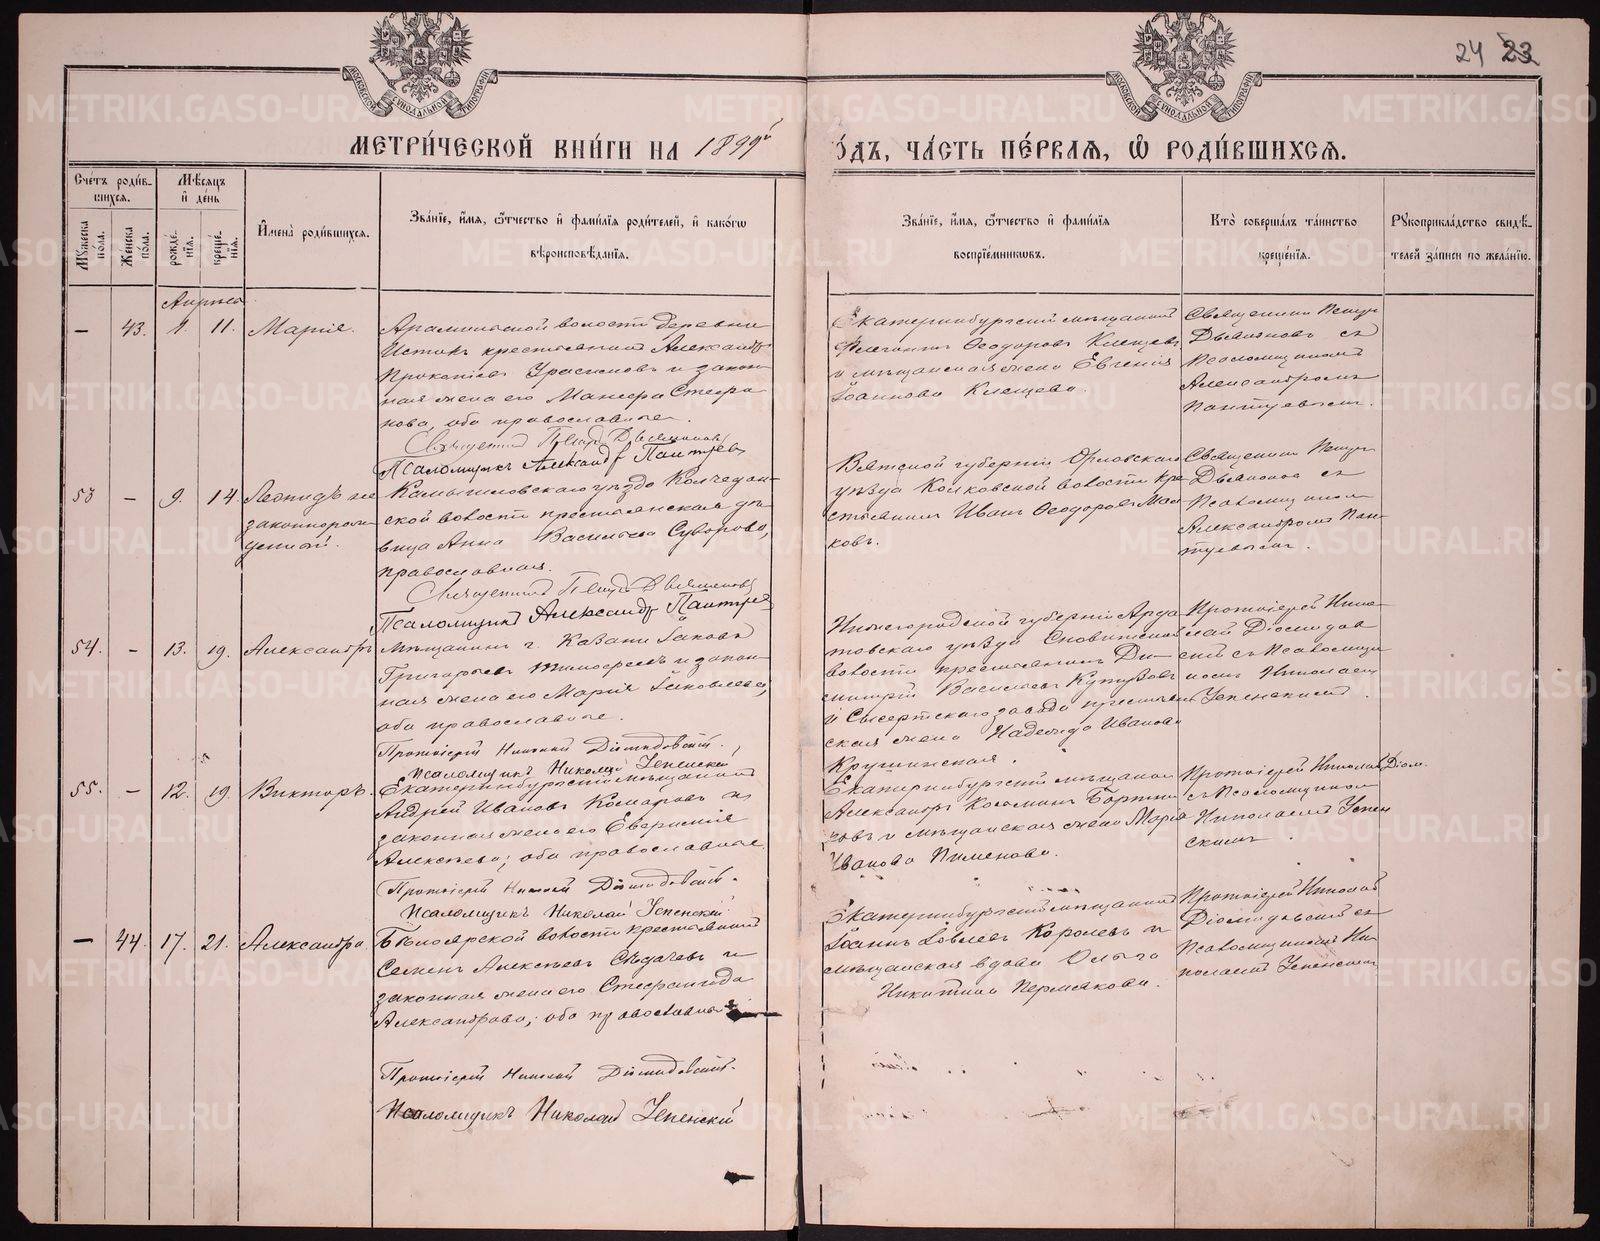 24 23
МЕТРИ́ЧЕСКОЙ КНИ́ГИ НА 1899й
О́ДЪ, ЧА́СТЬ ПЕ́РВАЯ, Ѡ҆ РОДИ́ВШИХСЯ.
Сче́тъ роди́вшихся.
Мꙋ́жеска по́ла.
Же́нска по́ла.
Мѣ́сяцъ и҆ де́нь
рожде́нїя.
креще́нїя.
И҆мена̀ роди́вшихся.
Зва́нїе, и҆́мя, ѻ҆́тчество и҆ фами́лїя роди́телей, и҆ како́гѡ
вѣроисповѣ́данїя.
Зва́нїе, и҆́мя, ѻ҆́тчество и҆ фами́лїя
воспрїе́мниковъ.
Кто̀ соверша́лъ та́инство
креще́нїя.
Рꙋкоприкла́дство свидѣ́-
телей за́писи по жела́нїю.
Апрѣля
— 43. 1. 11. Марія.
Арамильской волости деревни
Истокъ крестьянинъ Александръ
Прокопіевъ и закон-
ная жена его Стефа-
нова, оба православные.
Священникъ Петръ Дьяконовъ
Псаломщикъ Александръ Пантуевъ
Екатеринбургскій мѣщанинъ
Ѳеодоровъ Клещевъ
и мѣщанская жена Евгенія
Іоаннова Клещева.
Священникъ Петръ
Дьяконовъ съ
Псаломщикомъ
Александромъ
Пантуевымъ.
53 — 9. 14. Леонидъ не
законнорож-
денный.
Камышловскаго уѣзда Колчедан-
ской волости крестьянская дѣ-
вица Анна Васильева Суворова,
православная.
Священникъ Петръ Дьяконовъ
Псаломщикъ Александръ Пантуевъ
Вятской губерніи Орловскаго
уѣзда волости кре-
стьянинъ Иванъ Ѳеодоровъ
ковъ.
Священникъ Петръ
Дьяконовъ съ
Псаломщикомъ
Александромъ Пан-
туевымъ.
54. — 13. 19. Александръ
Мѣщанинъ г. Казани Іаковъ
Григорьевъ Тимофеевъ и закон-
ная жена его Марія Іаковлева,
оба православные.
Протоіерей Николай Діомидовскій.
Псаломщикъ Николай Успенскій
Нижегородской губерніи Арда-
товскаго уѣзда
волости крестьянинъ Ди-
митрій Васильевъ
и Сысертскаго завода крестьян-
ская жена Надежда Иванова
Крушинская.
Протоіерей Нико-
лай Діомидов-
скій съ Псаломщи-
комъ Николаемъ
Успенскимъ.
55. — 12. 19. Викторъ.
Екатеринбургскій мѣщанинъ
Андрей Ивановъ Комаровъ и
законная жена его
Алексѣева; оба православные.
Протоіерей Николай Діомидовскій.
Псаломщикъ Николай Успенскій
Екатеринбургскій мѣщанинъ
Александръ
и мѣщанская жена Марія
Иванова Пименова.
Протоіерей Николай Діом.
съ Псаломщикомъ
Николаемъ Успен
скимъ.
— 44. 17. 21. Александра.
Бѣлоярской волости крестьянинъ
Семенъ Алексѣевъ Сѣдачевъ и
законная жена его Стефанида
Александрова; оба православные
Протоіерей Николай Діомидовскій.
Псаломщикъ Николай Успенскій
Екатеринбургскій мѣщанинъ
Іоаннъ Королевъ и
мѣщанская вдова Ольга
Никитина Пермякова.
Протоіерей Николай
Діомидовскій съ
Псаломщикомъ Ни-
колаемъ Успенскимъ
METRIKI.GASO-URAL.RU